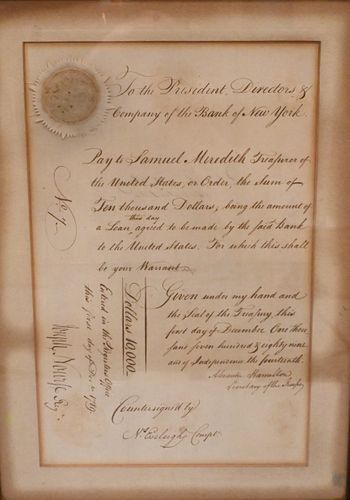 To the President, Directors &
Company of the Bank of New York.
Pay to Samuel Meredith Treasurer of
the United States, or Order, the Sum of
Ten thousand Dollars; being the amount of
this day
a Loan agreed to be made by the said Bank
to the United States. For which this shall
be your Warrant.
Given under my hand and
the Seal of the Treasury this
first day of December One thou
sand seven hundred & eighty nine
and of Independence the fourteenth.
Alexander Hamilton
Secretary of the Treasury
Dollars 10,000
Countersigned by
Ns. Eveleigh Compt.
No. 7.
Enterd in the Registers Office
this first day of Decr. 1789
Joseph Nourse Regr.